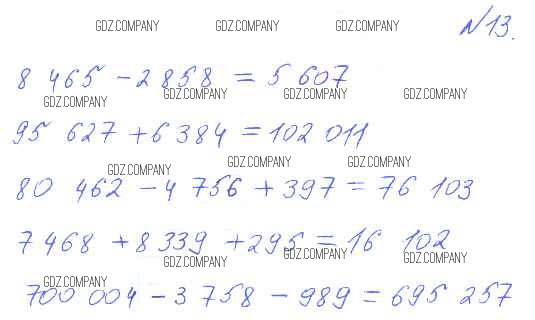 GDZ.COMPANY GDZ.COMPANY GDZ.COMPANY
№13.
8 465 - 2 858 = 5 607
GDZ.COMPANY GDZ.COMPANY GDZ.COMPANY GDZ.COMPANY
95 627 + 6 384 = 102 011
GDZ.COMPANY GDZ.COMPANY GDZ.COMPANY
80 462 - 4 756 + 397 = 76 103
7 468 + 8 339 + 295 = 16 102
GDZ.COMPANY GDZ.COMPANY GDZ.COMPANY
GDZ.COMPANY
700 004 - 3 758 - 989 = 695 257